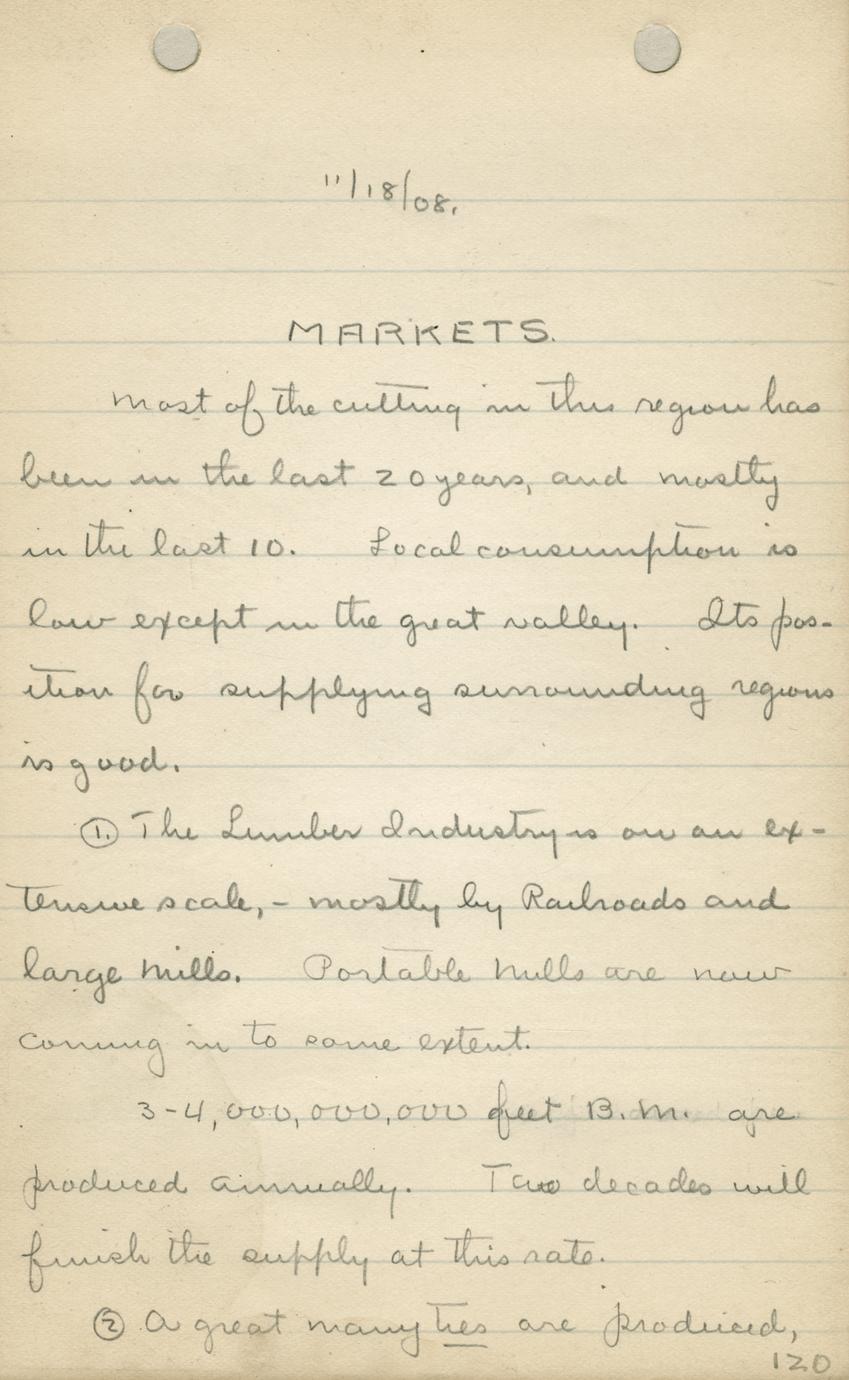 11/18/08.
MARKETS.
Most of the cutting in this region has
been in the last 20 years, and mostly
in the last 10. Local consumption is
low except in the great valley. Its pos-
ition for supplying surrounding regions
is good.
1. The Lumber Industry is on an ex-
tensive scale, - mostly by Railroads and
large Mills. Portable Mills are now
coming in to some extent.
3-4,000,000,000 feet B.M. are
produced annually. Two decades will
finish the supply at this rate.
2 A great many ties are produced,
120